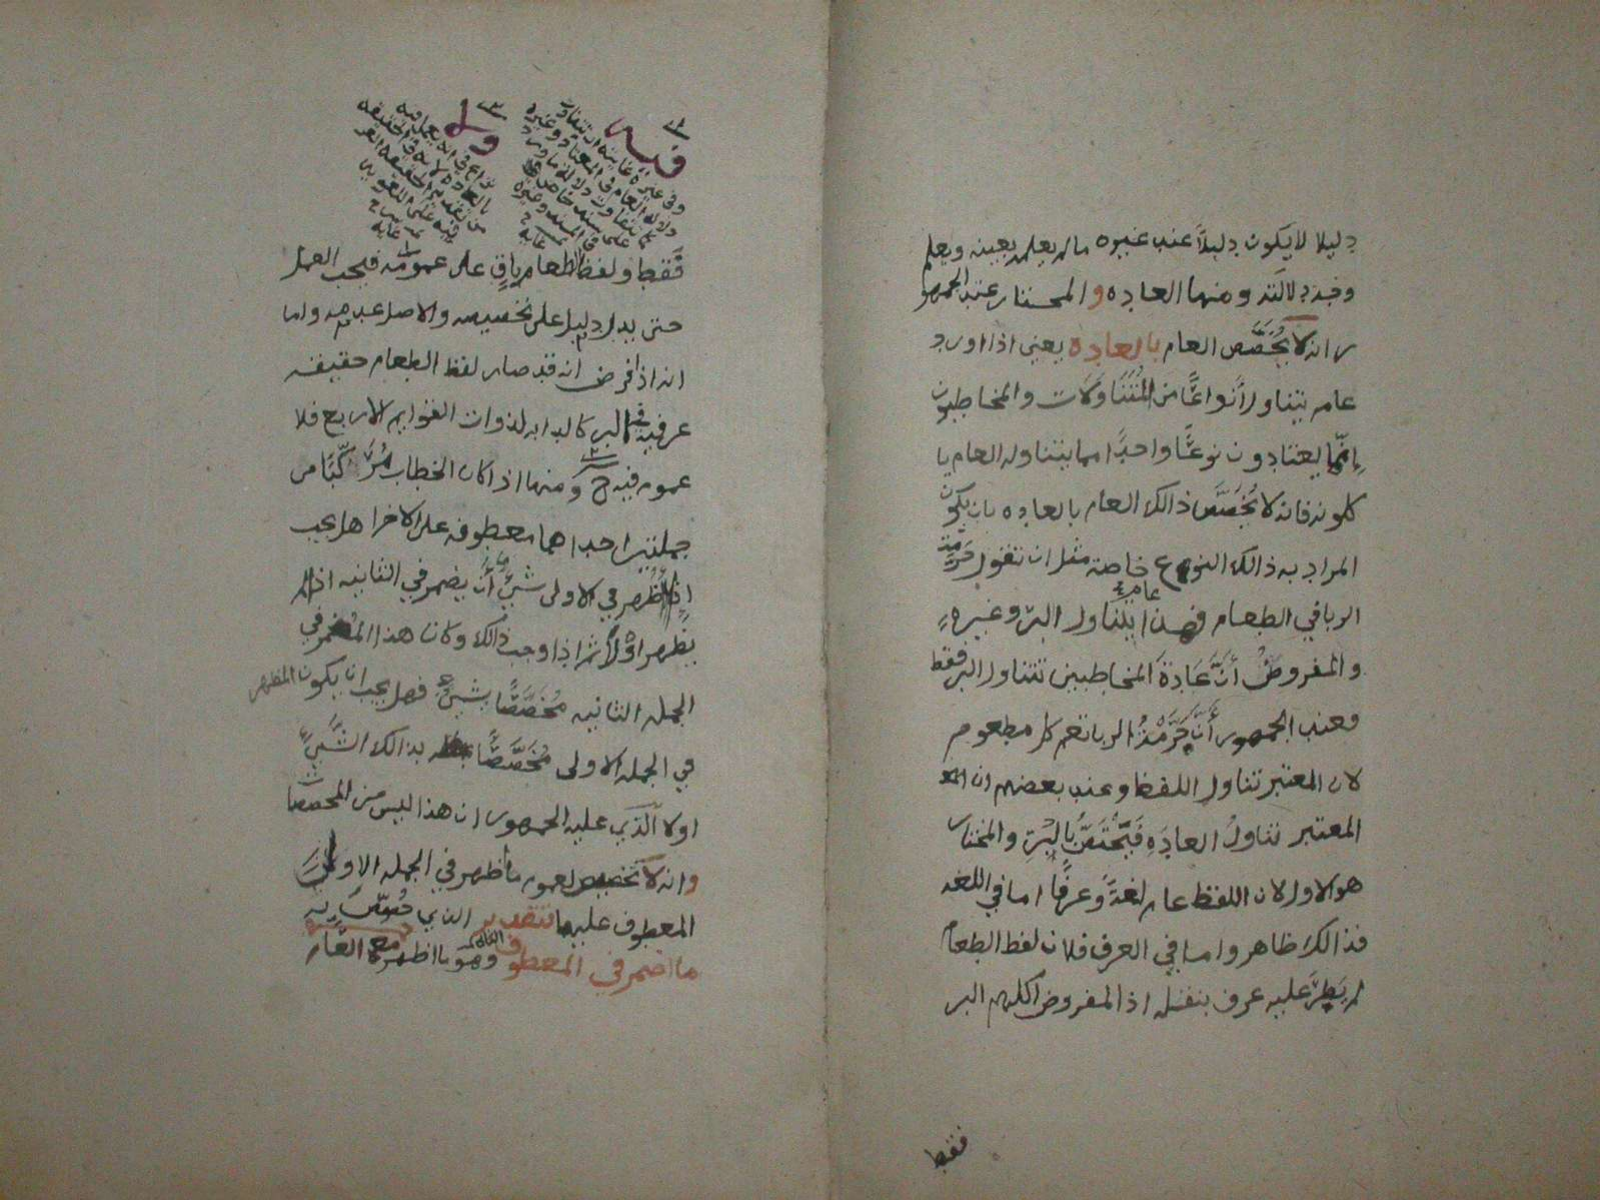 دليلا لا يكون دليلاً عند غيره ما لم يعلم بعينه ويعلم
وجه دلالته ومنها العاده والمختار عند الجمهو
ر انه لا يُخَصَّص العام بالعادة يعني اذا اورد
عام يتناول أنواعًا من المُتَنَاوَلات والمخاطبون
إنّما يعتادون نوعًا واحدًا مما يتناوله العام يا
كلونه فانه لا يُخَصَّص ذالك العام بالعاده بان يكون
المراد به ذالك النوع خاصة مثل ان تقول حَرَّمتُ
الربا في الطعام فهذا عام يتناول البرّ وغيره
والمفروضُ أنَّ عَادةَ المخاطبين تتناول البر فقط
فعند الجمهور أنَّ حُرْمَةُ الربا تعم كل مطعوم
لان المعتبر تناول اللفظ وعند بعضهم ان
المعتبر تناولُ العادَةِ فَيَخْتَصُّ بالبُرّ والمختار
هو الاول لان اللفظ عام لغةً وعرفًا اما في اللغه
فذالك ظاهر واما في العرف فلان لفظ الطعام
لم يَطرَ عليه عرف بنقله اذ المفروض اكلهم البر
فقط
قوله
وفي غيره غايته ان تتفاوت
دلالة العام في المعتاد وغيره
قوله
فَقَط ولفظ الطعام باقٍ على عمومه فيجب العمل
حتى يدل دليل على تخصيصه والاصل عدمه واما
انه اذا فرض انه قد صار لفظ الطعام حقيقه
عرفية في البر كالدابه لذوات القوايم الاربع فلا
عموم فيه ح ومنها اذا كان الخطاب مُرَكَّبًا من
جملتين احداهما معطوفه على الاخرا هل يجب
إذا ظهر في الاولى شيءٌ أن يضمر في الثانيه اذا لم
يظهر اوْلا ثم اذا وجب ذالك وكان هذا المُضمر في
الجمله الثانيه مُخَصَّصًا بشيءٍ فهل يجب ان يكون المظهر
في الجمله الاولى مُخَصَّصًا بذالك الشَّيءِ
اولا الذي عليه الجمهور ان هذا ليس من المخصصا
وانه لا تخصيص لعموم ما ظهر في الجمله الاولى
المعطوف عليها بتقدير الذي خُصِّصَ به
ما اضمر في المعطوف وهو ما اظهر مع العام